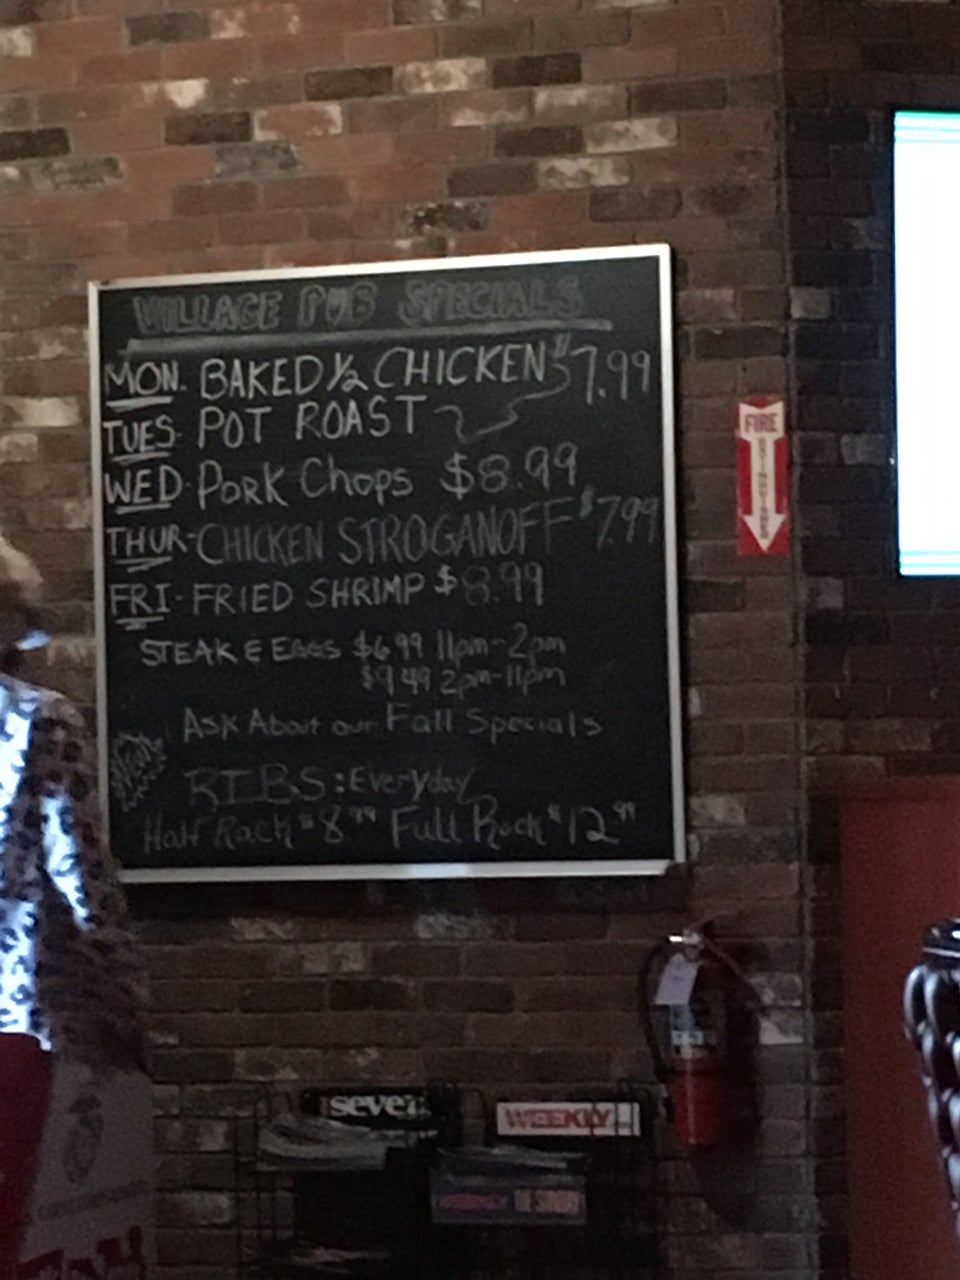 VILLAGE PUB SPECIALS
MON. BAKED ½ CHICKEN $7.99
TUES. POT ROAST
WED. PORK Chops $8.99
THUR-CHICKEN STROGANOFF $7.99
FRI-FRIED SHRIMP $8.99
STEAK & EGGS $6.99 11pm-2pm
$9.49 2pm-11pm
ASK About our Fall Specials
RIBS: Everyday
Half Rack $8.99 Full Rack $12.99
FIRE
EXTINGUISHER
seven
WEEKLY